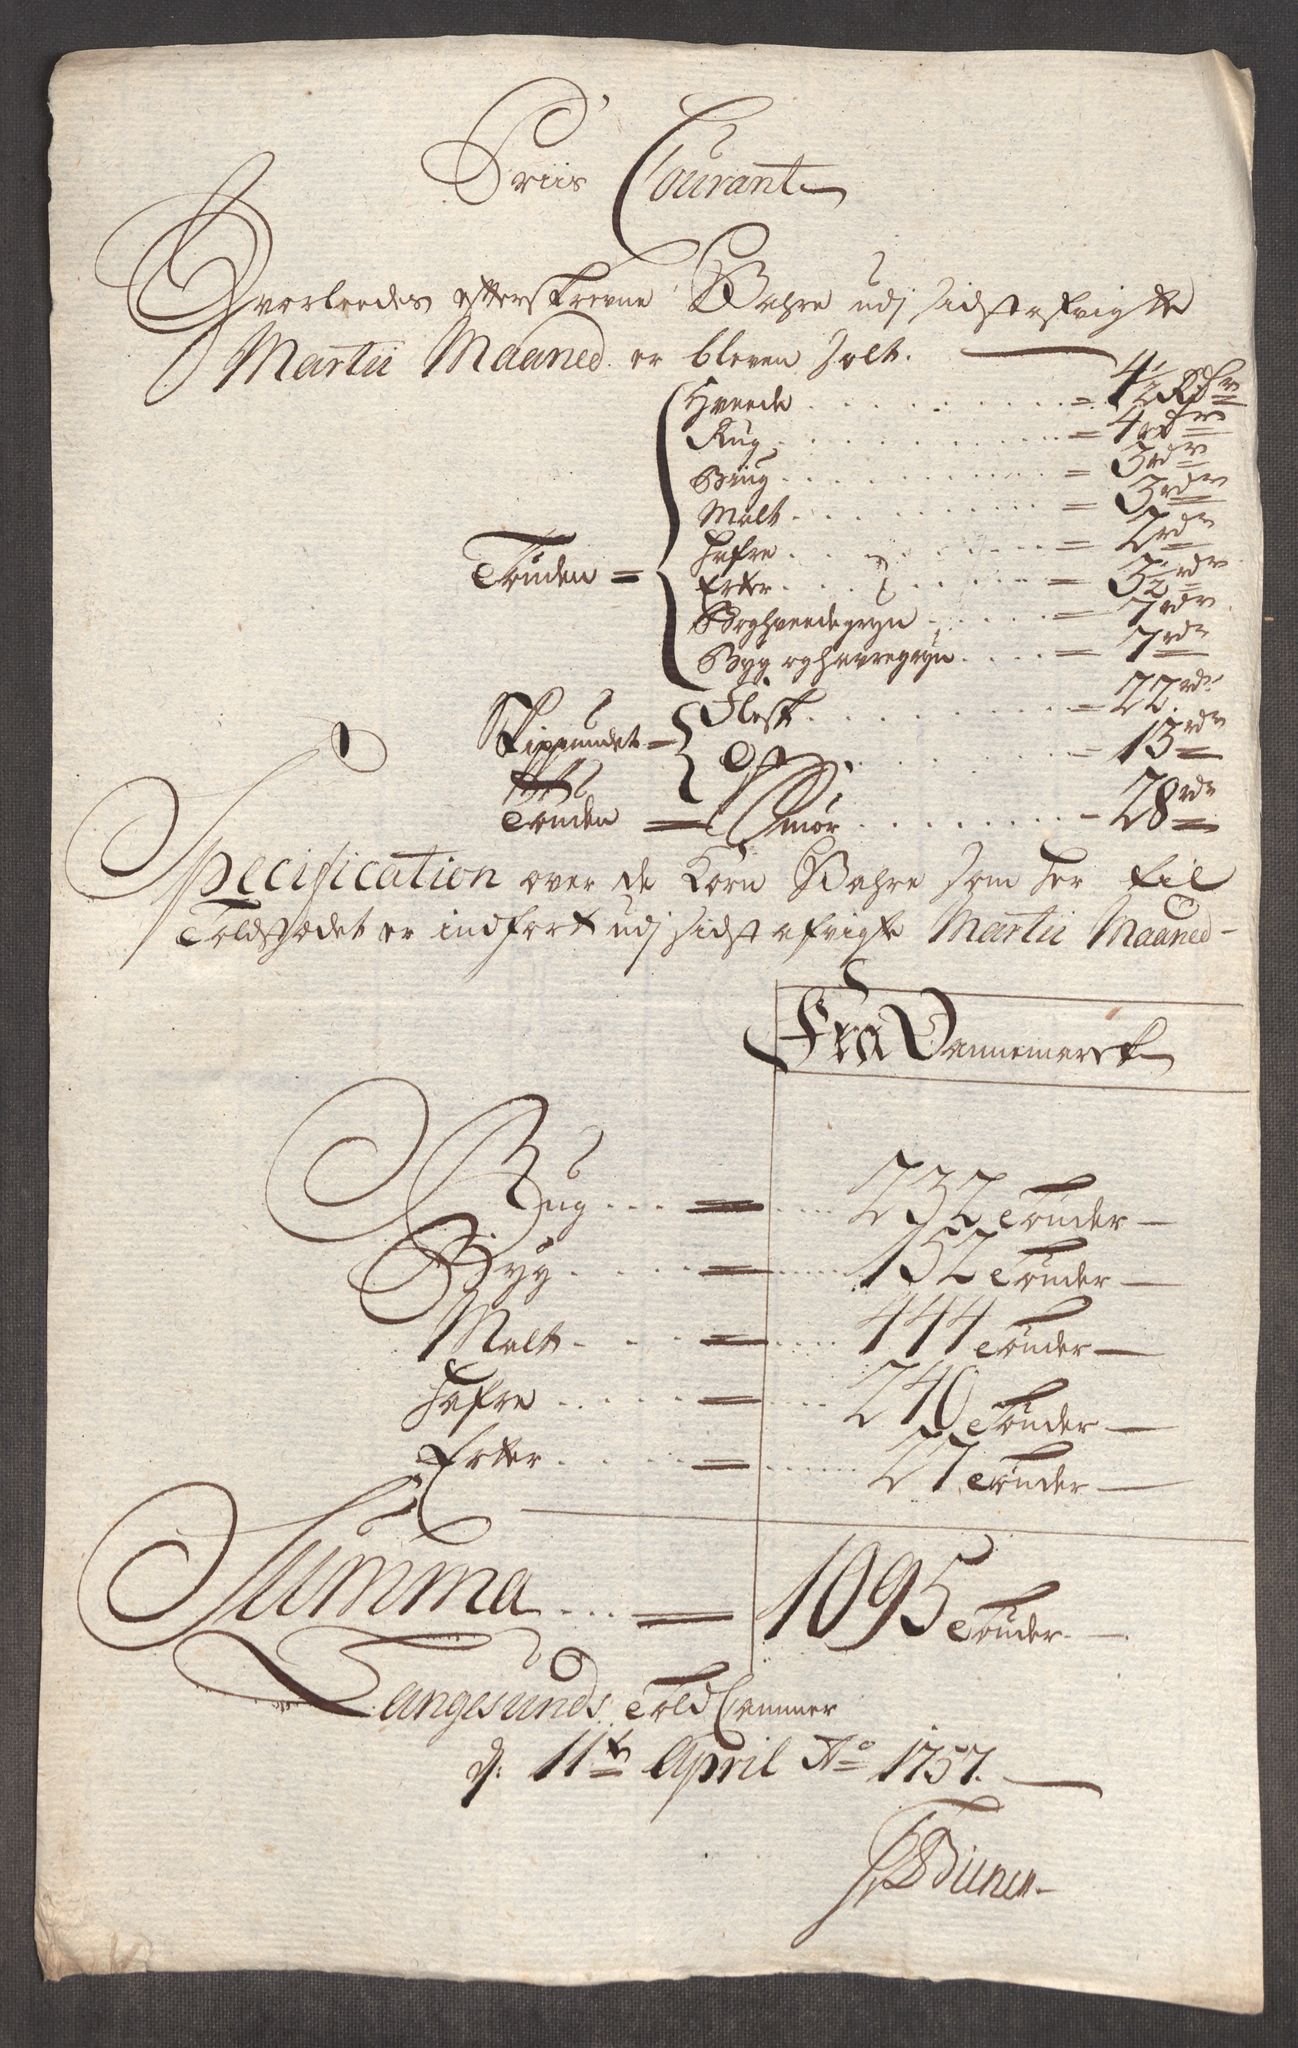 Priis Courant
Hvorleedes efterskrevne Wahre udj sidstafvigte
Martii Maaned er bleven solt.
Hveede = 4½ Rdr
Rug = 4 rdr
Biug = 3 rdr
Malt = 3 rdr
Hafre = 2 rdr
Tønden =
Erter = 3½ rdr
Boghveedegryn = 7 rdr
Byg og havregryn = 7 rdr
Flesk = 22 rdr
Skippundet =
= 13 rdr
Tønden = Smør = 28 rdr
Specification over de Korn Wahre som her til
Toldstædet er indført udj sidst afvigte Martii Maaned
Fra Dannemarck
Rug = 232 Tønder
Byg = 152 Tønder
Malt = 444 Tønder
Hafre = 240 Tønder
Erter = 27 Tønder
Summa = 1095 Tønder
Langesunds Told Cammer
d: 11te April Ao 1757.